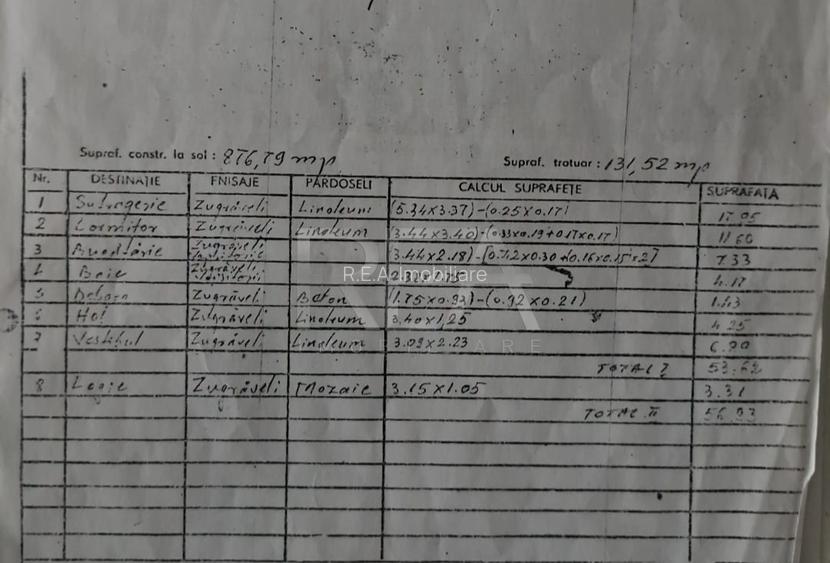 Supraf. constr. la sol : 876,79 mp
Supraf. trotuar : 131,52 mp
Nr. DESTINAȚIE FNISAJE PARDOSELI CALCUL SUPRAFEȚE SUPRAFAȚA
1 Sufragerie Zugrăveli Linoleum (5.34x3.37)-(0.25x0.17)
2 Dormitor Zugrăveli Linoleum (3.44x3.40)-(0.33x0.19+0.17x0.17) 11.60
3 Bucătărie Zugrăveli 3.44x2.18)-[0.42x0.30+(0.16x0.15x2] 7.33
4 Baie Zugrăveli 4.17
5 Zugrăveli Beton (1.75x0.93)-(0.92x0.21) 1.43
6 Hol Zugrăveli Linoleum 3.40x1,25 4.25
7 Vestibul Zugrăveli Linoleum 3.09x2.23
TOTAL I 53.62
8 Logie Zugrăveli Mozaic 3.15x1.05 3.31
TOTAL II 56.93
R.E.A. Imobiliare